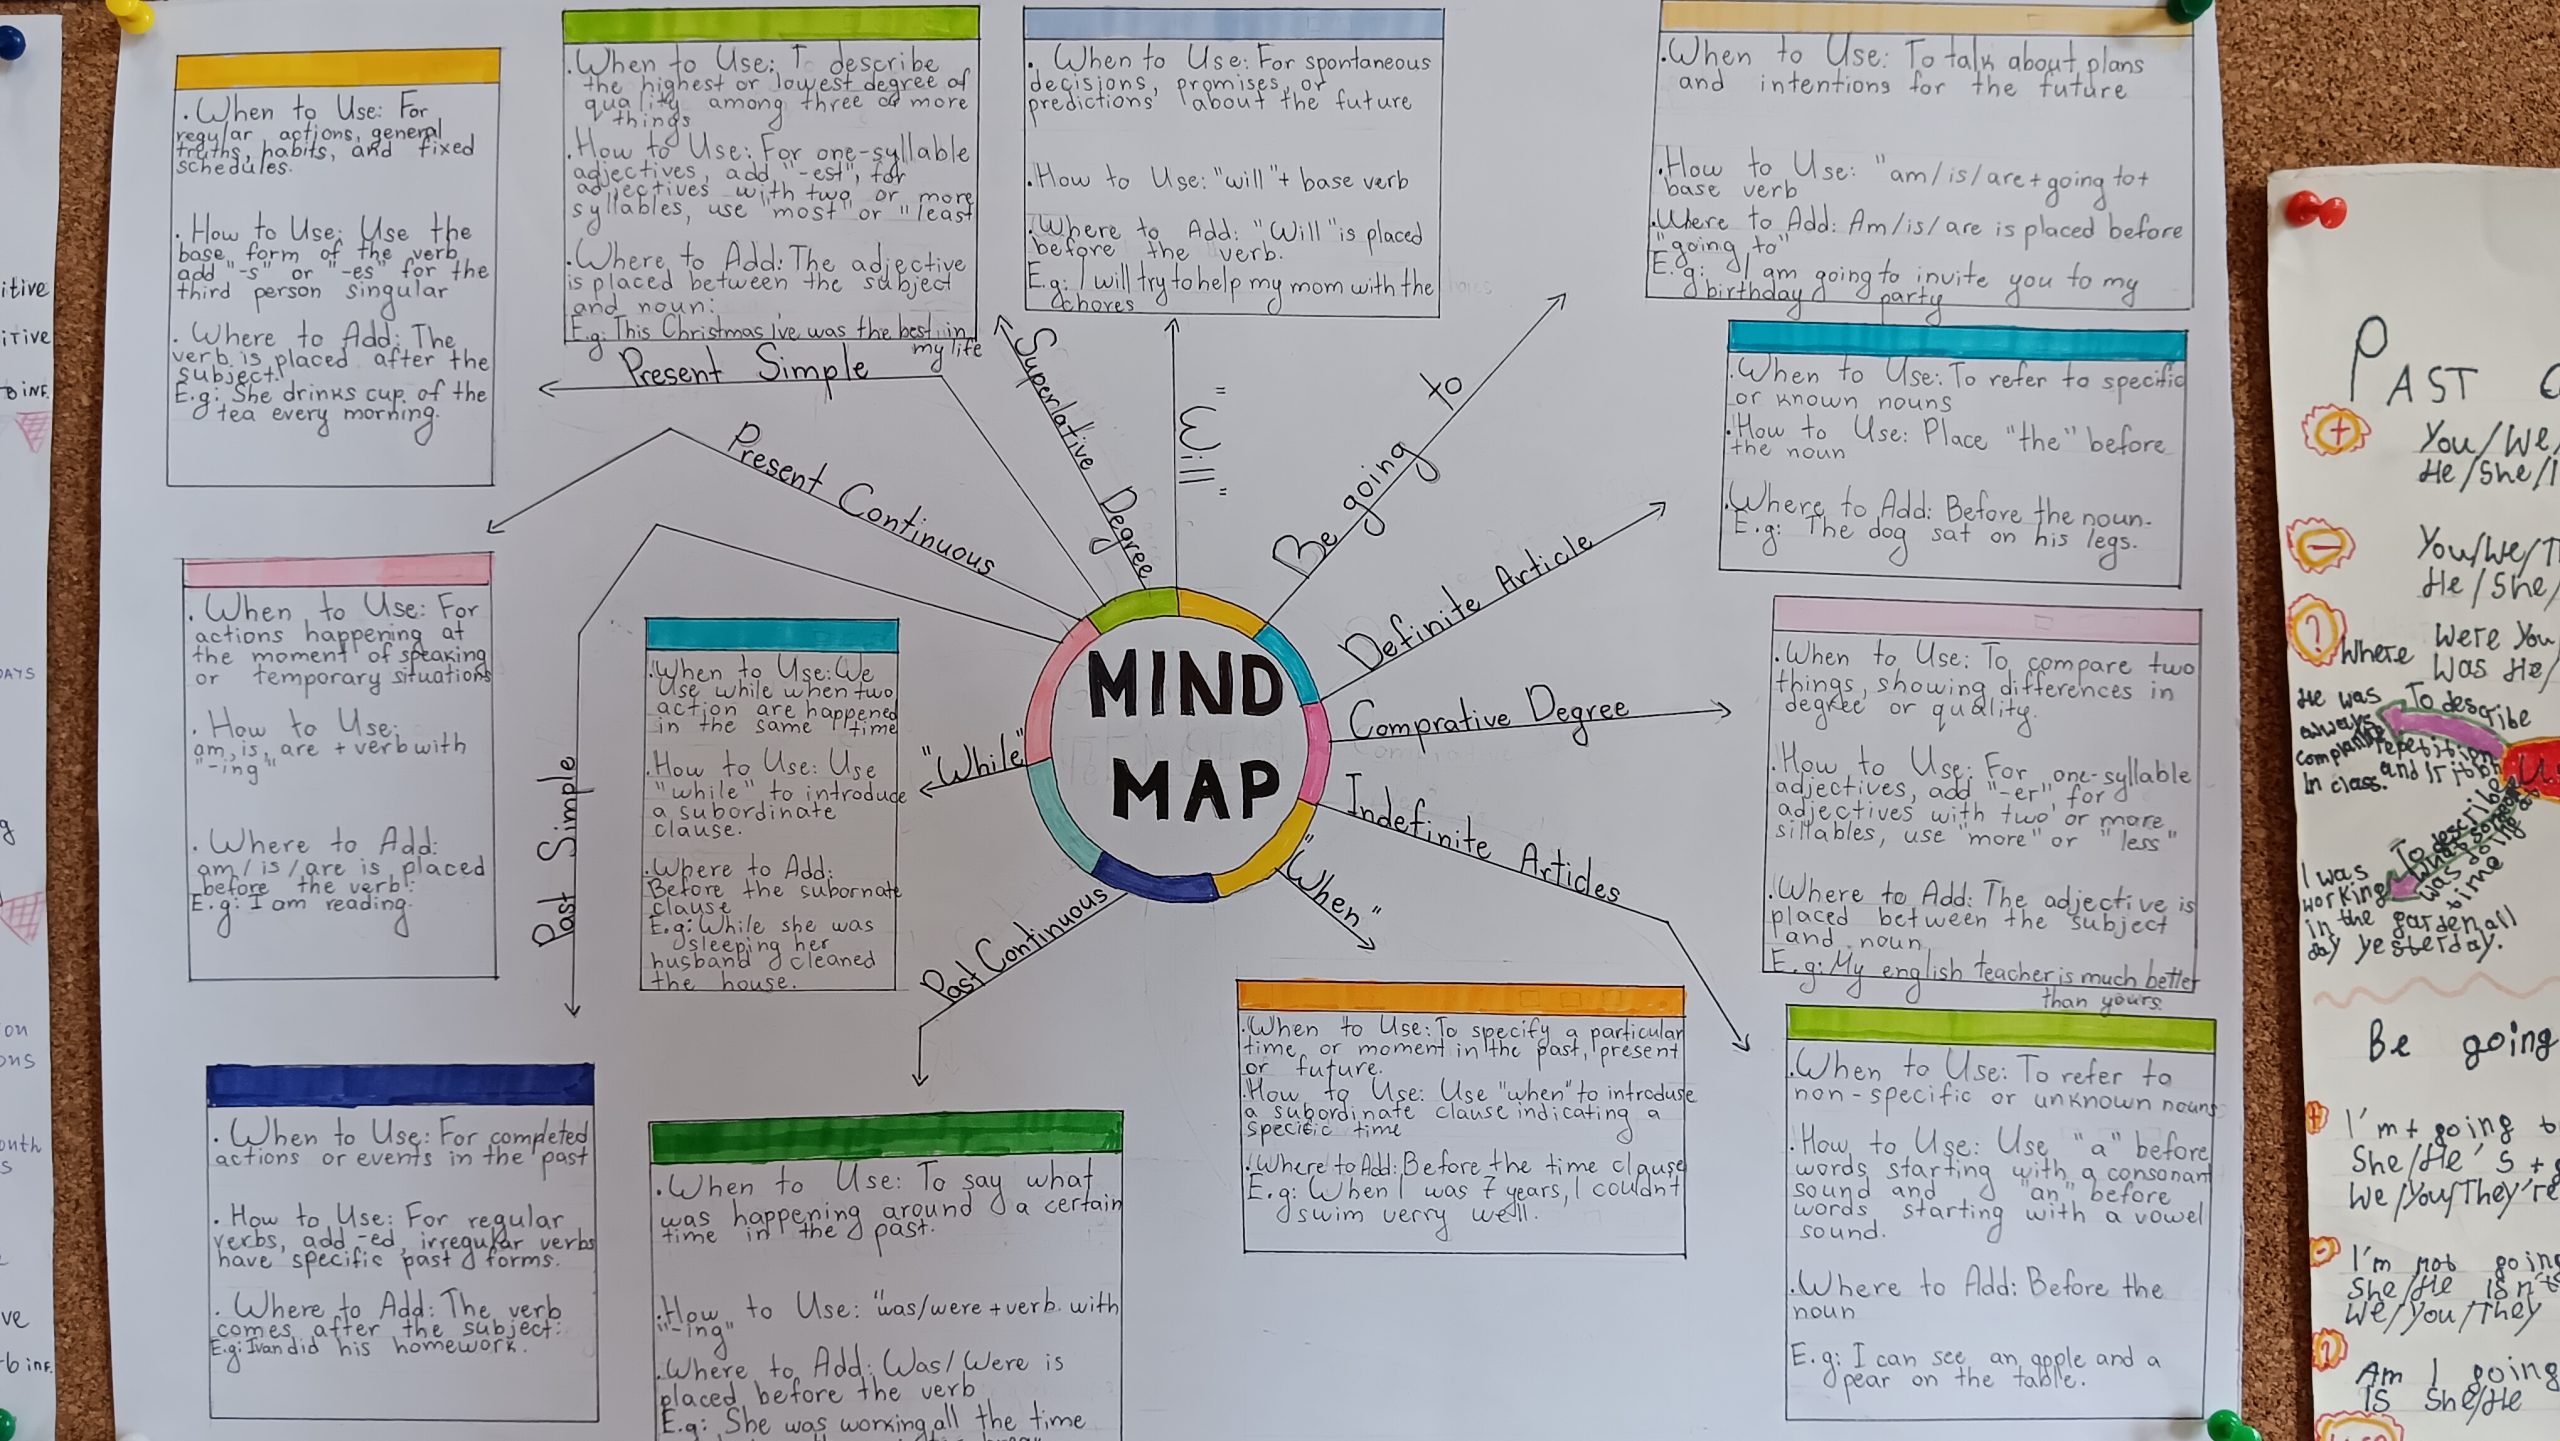 MIND
MAP
Present Simple
. When to Use: For
regular actions, general
truths, habits, and fixed
schedules.
. How to Use: Use the
base form of the verb
add "-s" or "-es" for the
third person singular
. Where to Add: The
verb is placed after the
subject:
E.g: She drinks cup of the
tea every morning.
Superlative Degree
. When to Use: To describe
the highest or lowest degree of
quality among three or more
things
. How to Use: For one-syllable
adjectives, add "-est", for
adjectives with two or more
syllables, use "most" or "least
. Where to Add: The adjective
is placed between the subject
and noun:
E.g: This Christmas I've was the best in
my life
"Will"
. When to Use: For spontaneous
decisions, promises, or
predictions about the future
. How to Use: "will" + base verb
. Where to Add: "Will" is placed
before the verb.
E.g: I will try to help my mom with the
chores
Be going to
. When to Use: To talk about plans
and intentions for the future
. How to Use: "am/is/are + going to +
base verb
. Where to Add: Am/is/are is placed before
"going to"
E.g: I am going to invite you to my
birthday party
Definite Article
. When to Use: To refer to specific
or known nouns
. How to Use: Place "the" before
the noun
. Where to Add: Before the noun.
E.g: The dog sat on his legs.
Comprative Degree
. When to Use: To compare two
things, showing differences in
degree or quality.
. How to Use: For one-syllable
adjectives, add "-er", for
adjectives with two or more
sillables, use "more" or "less"
. Where to Add: The adjective is
placed between the subject
and noun
E.g: My english teacher is much better
than yours.
Indefinite Articles
. When to Use: To refer to
non-specific or unknown nouns
. How to Use: Use "a" before
words starting with a consonant
sound and "an" before
words starting with a vowel
sound.
. Where to Add: Before the
noun
E.g: I can see an apple and a
pear on the table.
"When"
. When to Use: To specify a particular
time or moment in the past, present
or future.
. How to Use: Use "when" to introduse
a subordinate clause indicating a
specific time
. Where to Add: Before the time clause
E.g: When I was 7 years, I couldn't
swim verry well.
Past Continuous
. When to Use: To say what
was happening around a certain
time in the past.
. How to Use: "was/were + verb with
"-ing"
. Where to Add: Was/Were is
placed before the verb
E.g: She was working all the time
"While"
. When to Use: We
use while when two
action are happened
in the same time
. How to Use: Use
"while" to introduce
a subordinate
clause.
. Where to Add:
Before the subornate
clause
E.g: While she was
sleeping her
husband cleaned
the house.
Past Simple
. When to Use: For completed
actions or events in the past
. How to Use: For regular
verbs, add -ed, irregular verbs
have specific past forms.
. Where to Add: The verb
comes after the subject:
E.g: Ivan did his homework.
Present Continuous
. When to Use: For
actions happening at
the moment of speaking
or temporary situations
. How to Use:
am, is, are + verb with
"-ing"
. Where to Add:
am/is/are is placed
before the verb:
E.g: I am reading.
PAST
+
You/We/
He/She/I
-
You/We/T
He/She/
?
Where Were You
Was He/
To describe
repetition
and
He was
always
complaining
In class.
To describe
what someone
was doing at
time
I was
working
in the garden all
day yesterday.
Be going
+
I'm + going to
She/He's +
We/You/They're
-
I'm not going
She/He isn't
We/You/They
?
Am I going
Is She/He